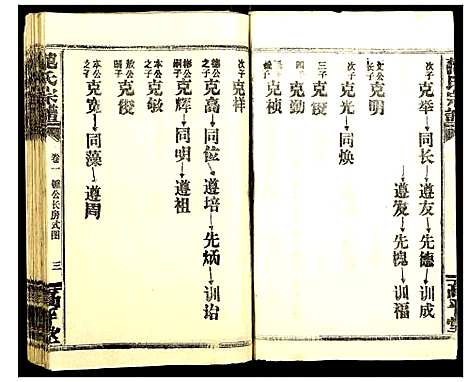 次子 克举 同长 遵友 先德 训成
遵发 先槐 训福
文公子 克明
次子 克光 同焕
三子 克俊
四子 克勤
次子 克祯
次子 克祥
德公之子 克高 同位 遵培 先炳 训诒
彬公嗣子 克辉 同明 遵祖
本公之子 克敏
敖公子 克俊
次子 克宽 同藻 遵周
龍氏宗譜
卷一 公长房式图
三